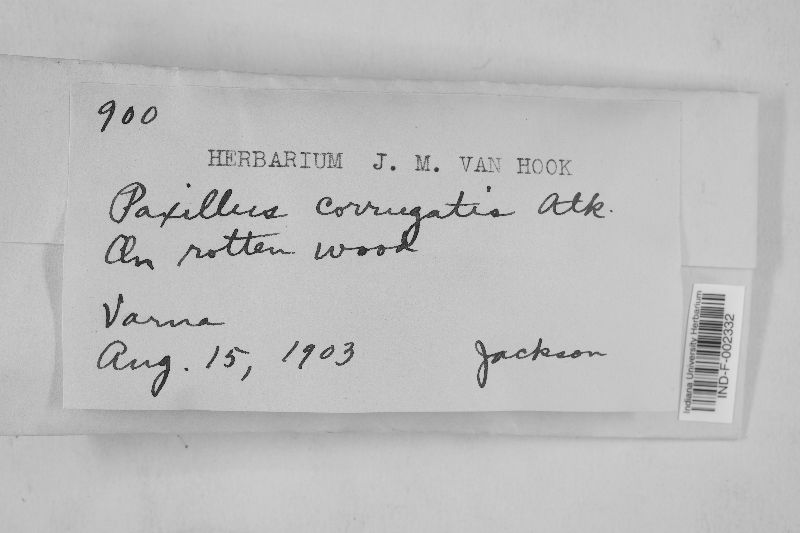 900
HERBARIUM J. M. VAN HOOK
Paxillus corrugatis Atk.
On rotten wood
Varna
Aug. 15, 1903 Jackson
Indiana University Herbarium
IND-F-002332